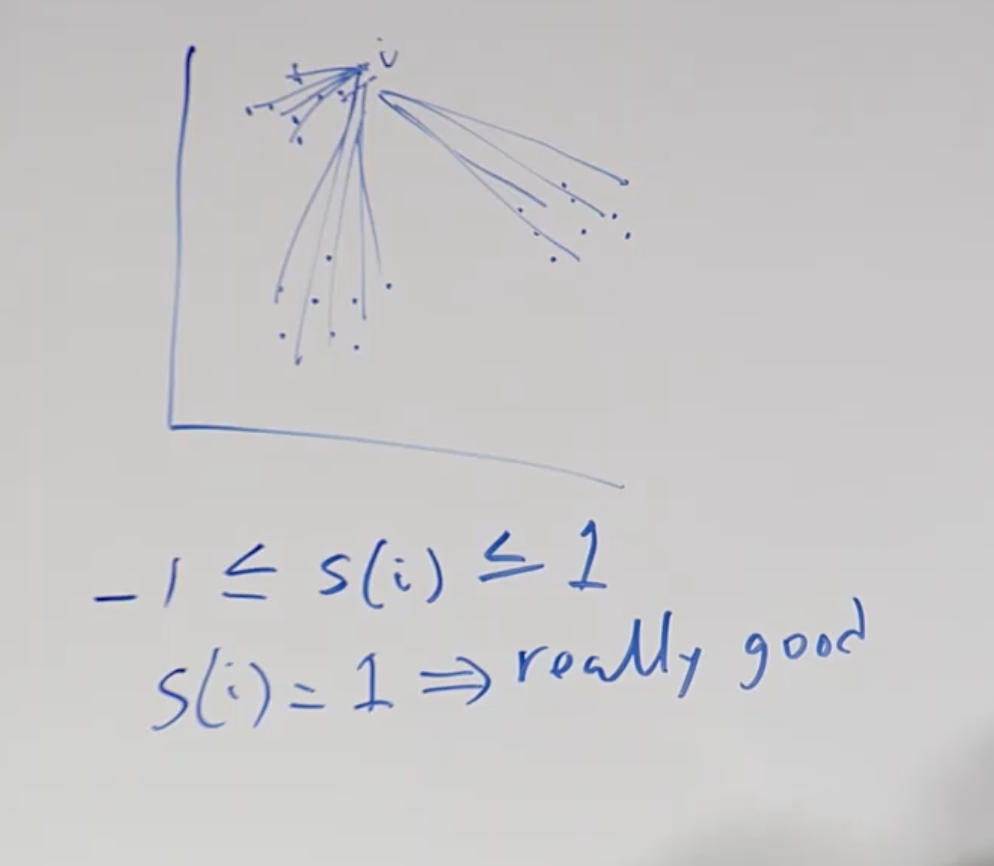 i
-1 ≤ s(i) ≤ 1
s(i) = 1 ⇒ really good